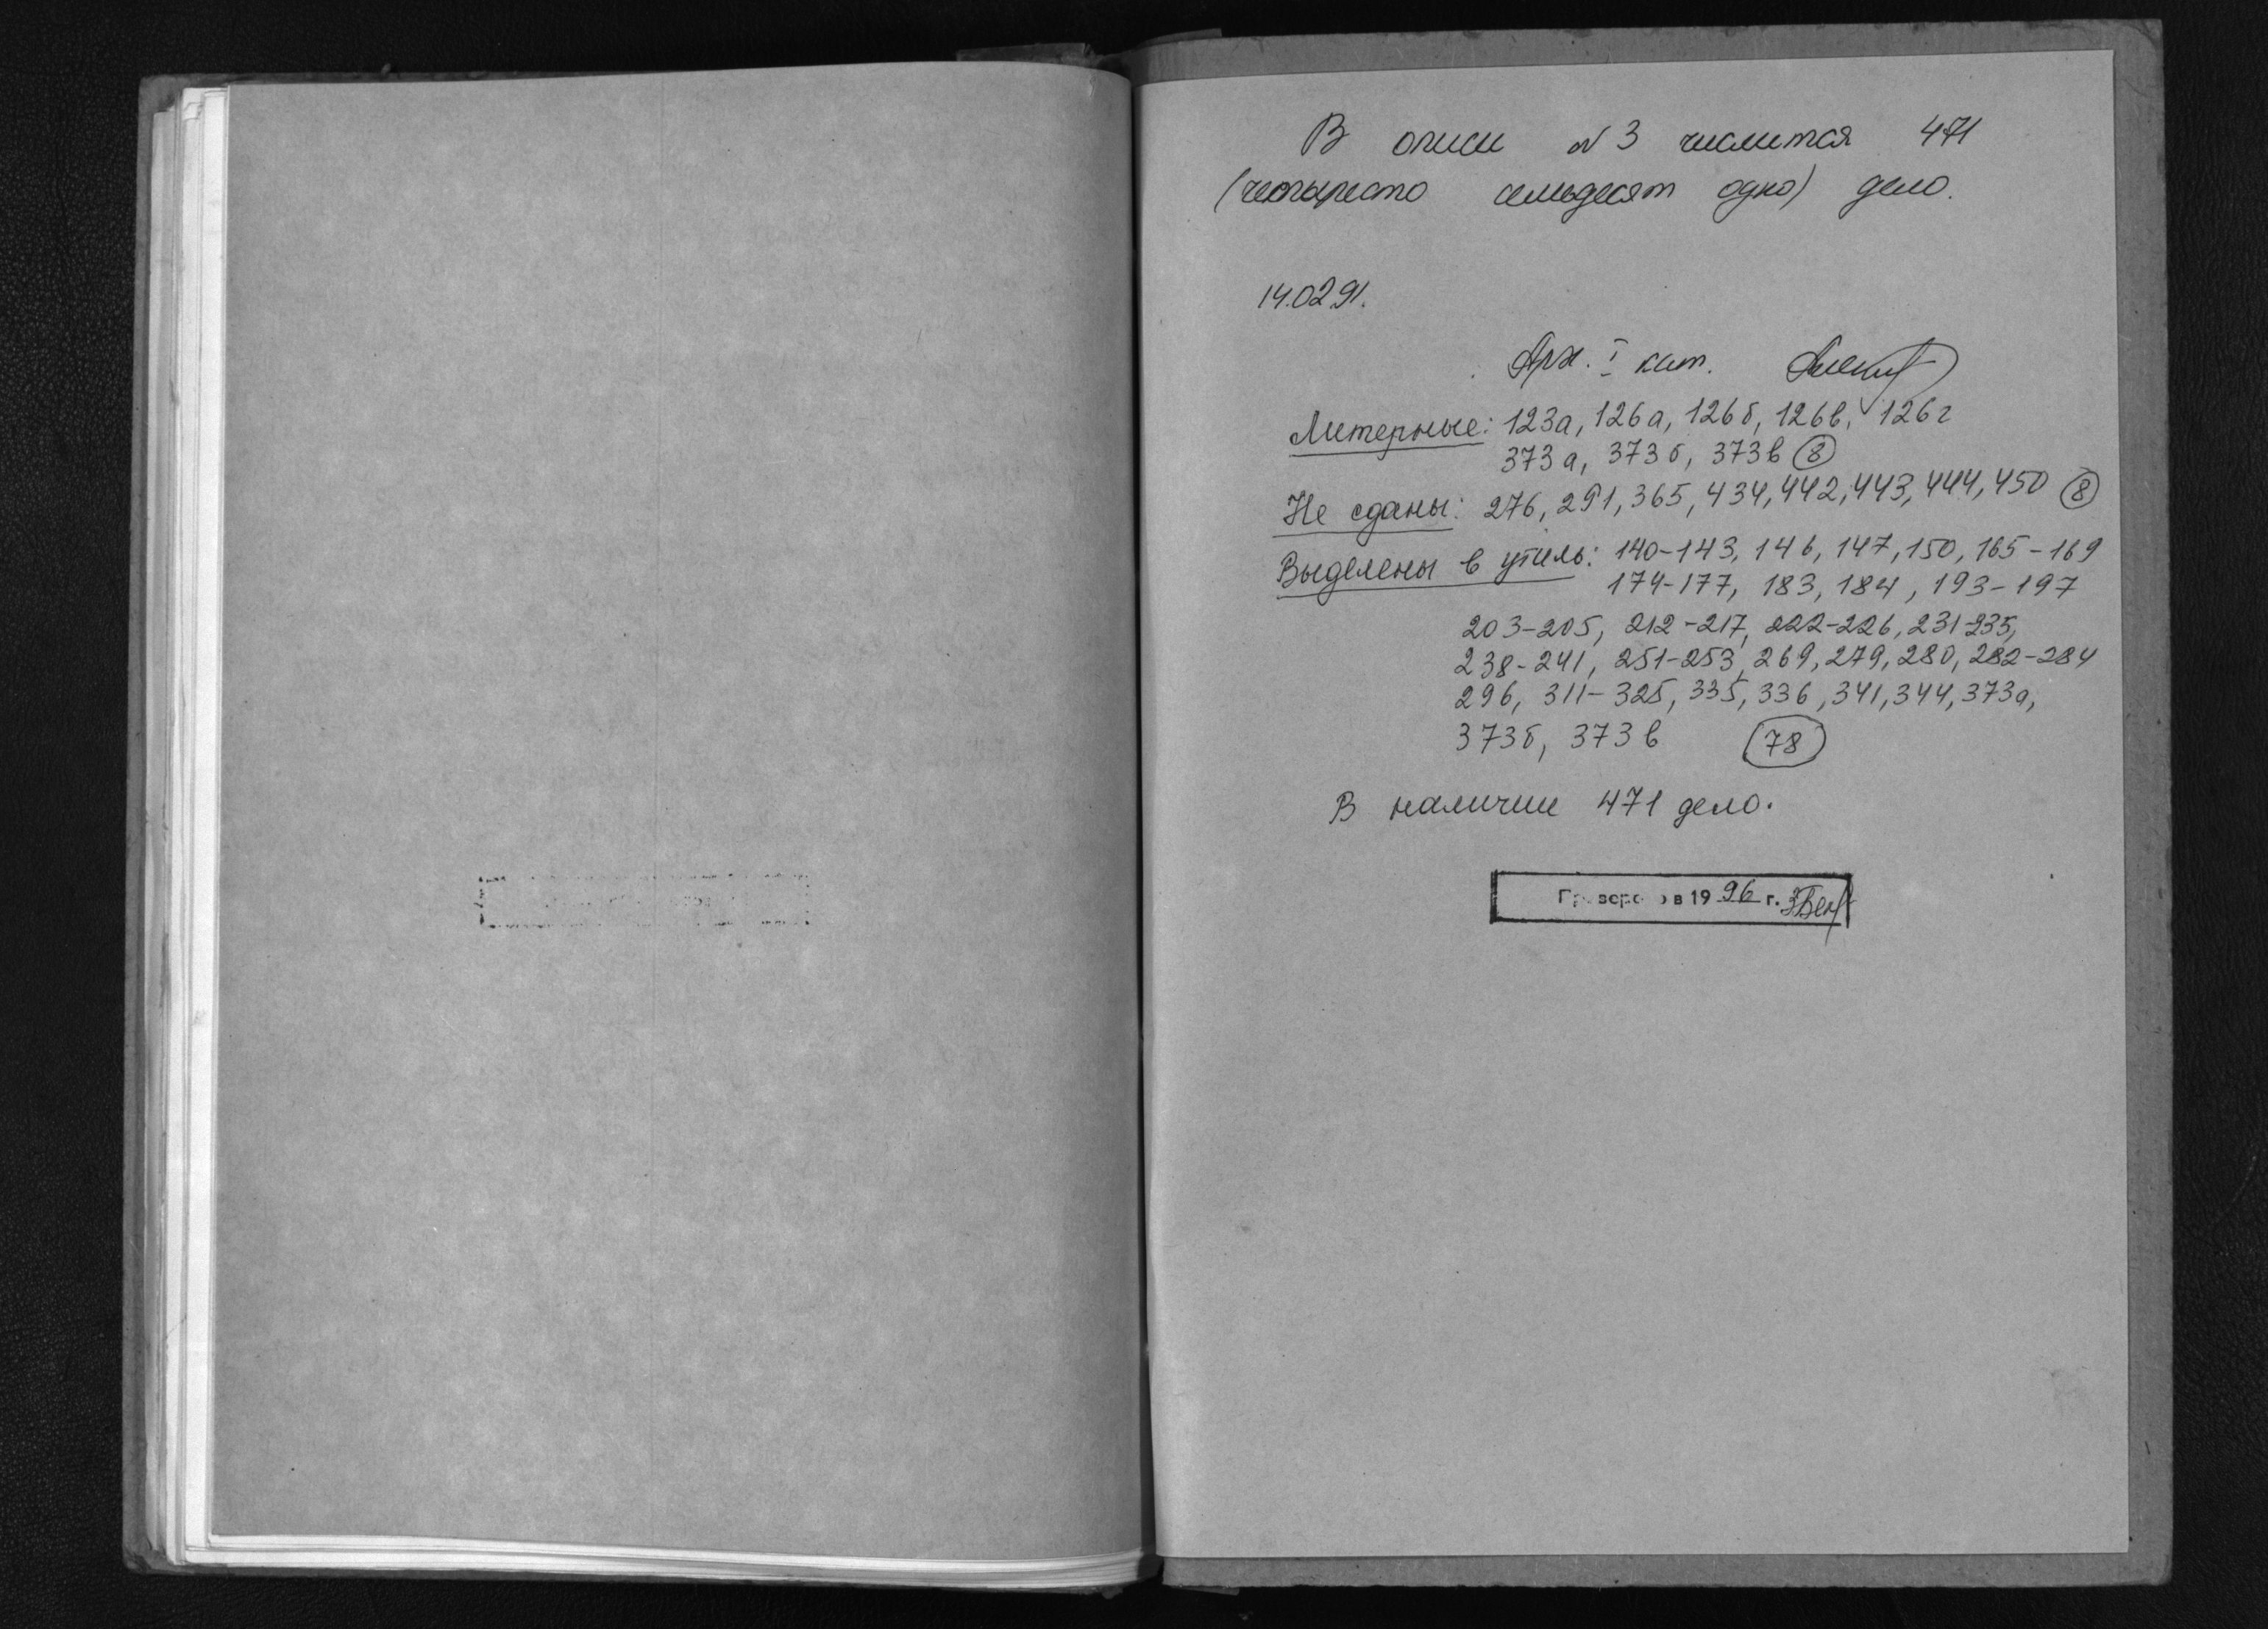 В описи № 3 числится 471
(четыреста семьдесят одно) дело.
14.02.91.
Арх. I кат.
Литерные: 123а, 126а, 126б, 126в, 126г
373а, 373б, 373в 8
Не сданы: 276, 291, 365, 434, 442, 443, 444, 450 8
Выделены в утиль: 140-143, 146, 147, 150, 165-169
174-177, 183, 184, 193-197
203-205, 212-217, 222-226, 231-235,
238-241, 251-253, 269, 279, 280, 282-284
296, 311-325, 335, 336, 341, 344, 373а,
373б, 373в 78
В наличии 471 дело.
Проверено в 1996 г.